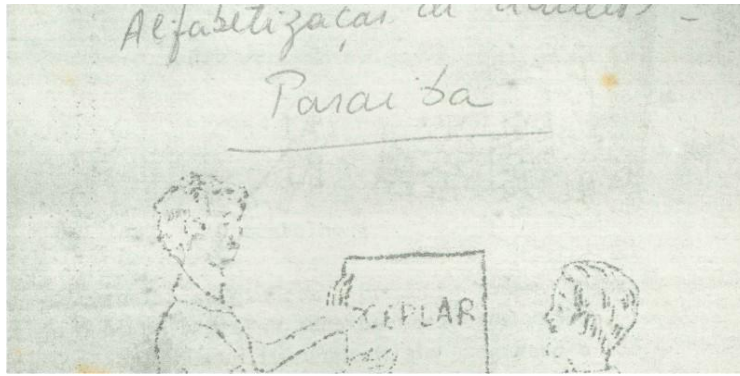 Alfabetização de adultos -
Paraíba
CEPLAR